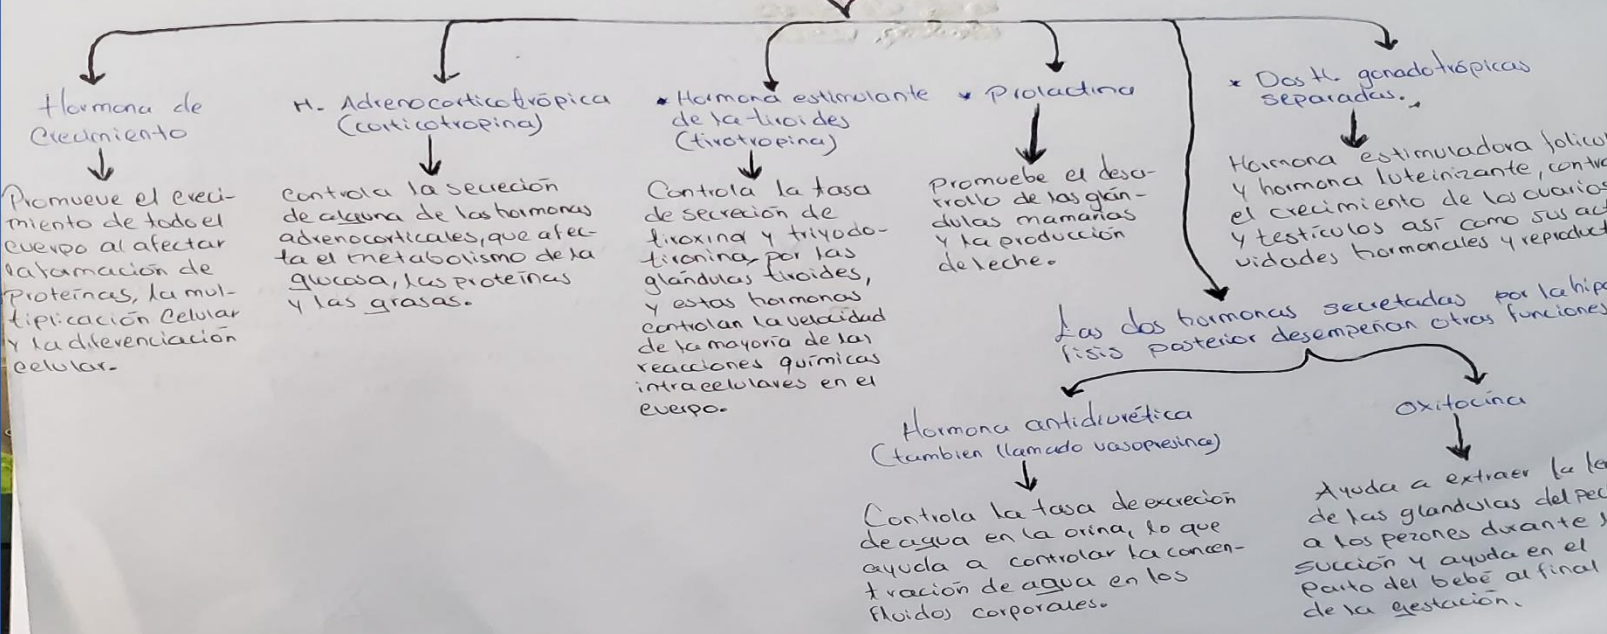 Hormona de
Crecimiento
Promueve el creci-
miento de todo el
cuerpo al afectar
la formación de
proteínas, la mul-
tiplicación Celular
y la diferenciación
celular.
H. Adrenocorticotrópica
(corticotropina)
Controla la secreción
de alguna de las hormonas
adrenocorticales, que afec-
ta el metabolismo de la
glucosa, las proteínas
y las grasas.
* Hormona estimulante
de la tiroides
(tirotropina)
Controla la tasa
de secreción de
tiroxina y triyodo-
tironina, por las
glándulas tiroides,
y estas hormonas
controlan la velocidad
de la mayoría de las
reacciones químicas
intracelulares en el
cuerpo.
* Prolactina
Promuebe el desa-
rrollo de las glán-
dulas mamarias
y la producción
de leche.
* Dos H. gonadotrópicas
separadas.
Hormona estimuladora folicu
y hormona luteinizante, contr
el crecimiento de los ovarios
y testículos así como sus act
vidades hormonales y reproduct
Las dos hormonas secretadas por la hipó
fisis posterior desempeñan otras funciones
Hormona antidiurética
(tambien llamado vasopresina)
Controla la tasa de excreción
de agua en la orina, lo que
ayuda a controlar la concen-
tración de agua en los
fluidos corporales.
Oxitocina
Ayuda a extraer la le
de las glandulas del pec
a los pezones durante
succión y ayuda en el
parto del bebé al final
de la gestación.